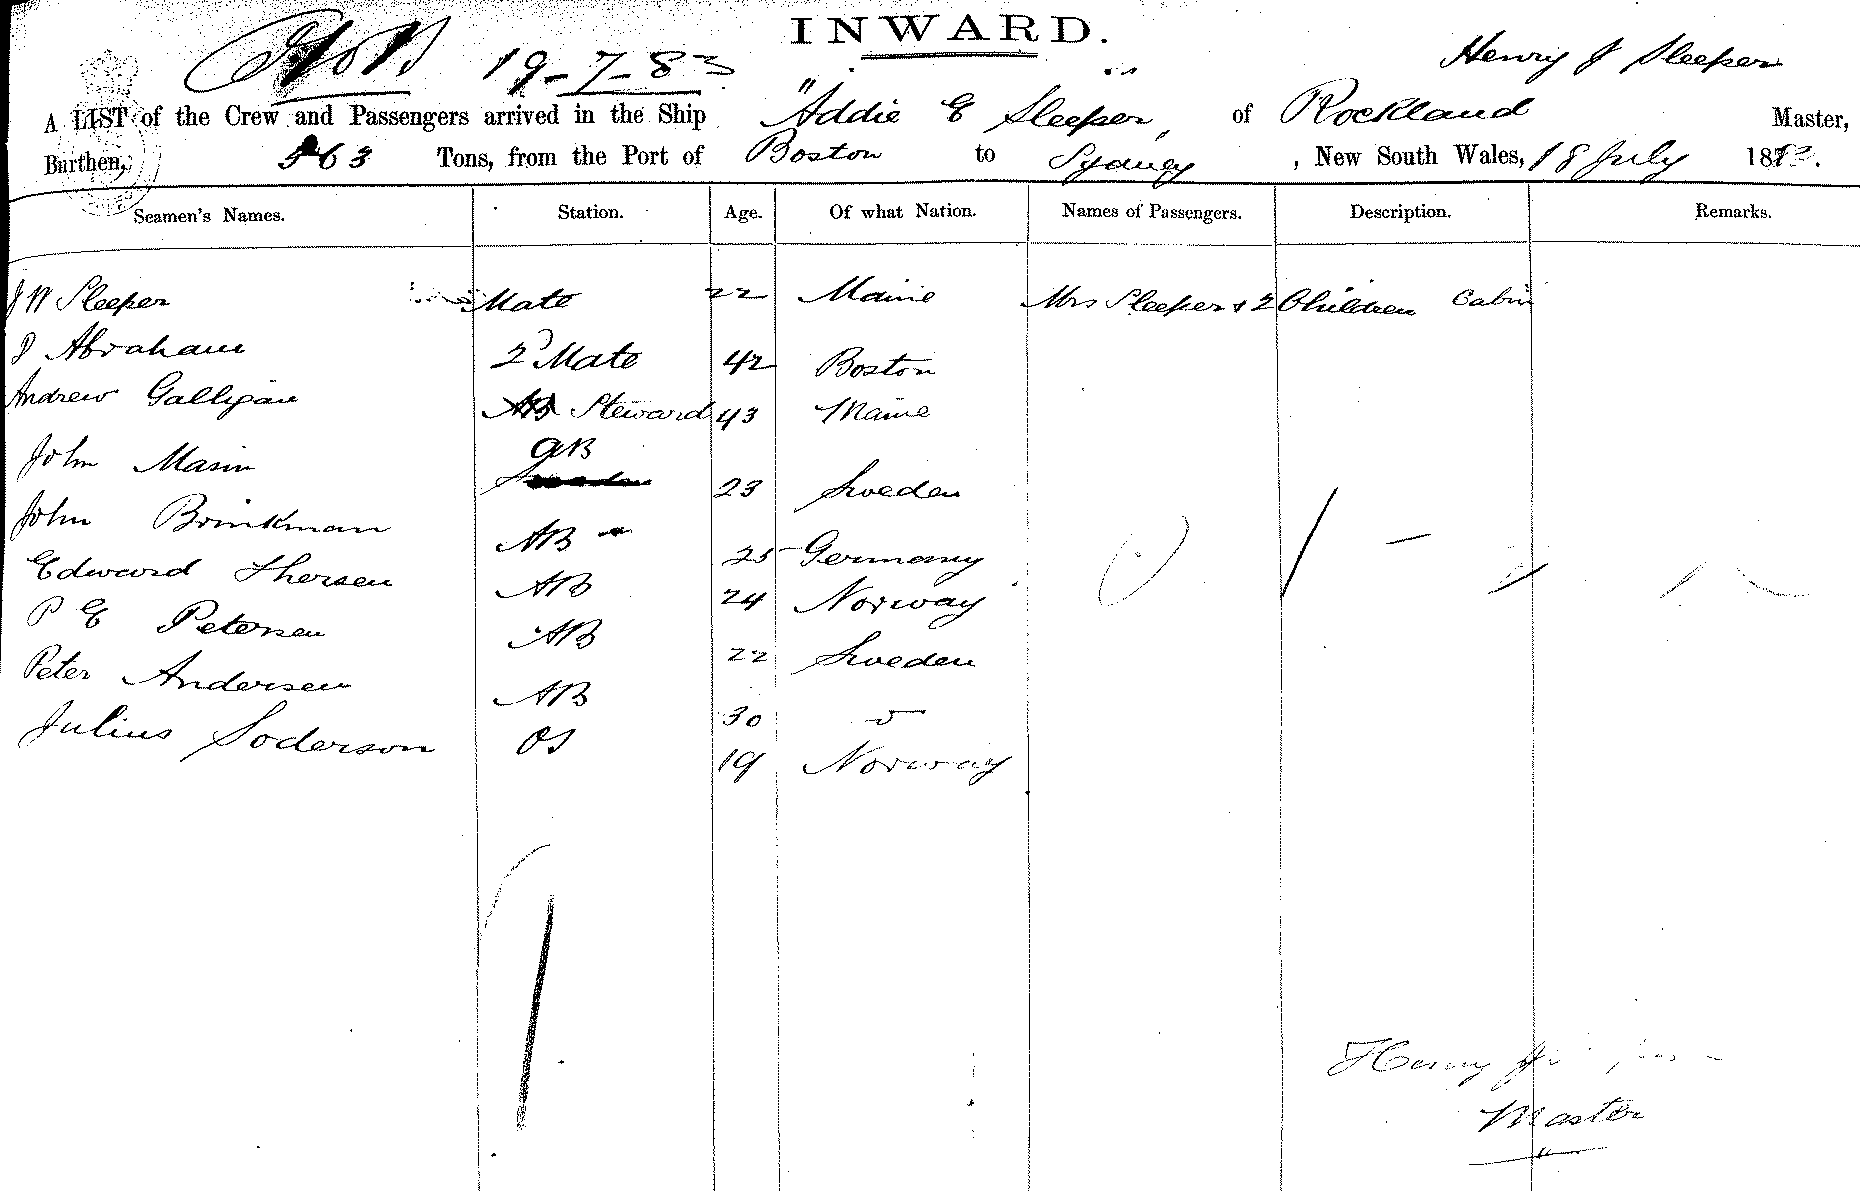 INWARD.
19-7-83
Henry J Sleeper
A LIST of the Crew and Passengers arrived in the Ship "Addie E Sleeper" of Rockland Master,
Burthen, 563 Tons, from the Port of Boston to Sydney, New South Wales, 18 July 1883.
Seamen's Names. Station. Age. Of what Nation. Names of Passengers. Description. Remarks.
J W Sleeper Mate 22 Maine Mrs Sleeper & 2 Children Cabin
J Abraham 2 Mate 42 Boston
Andrew Galligan AB Steward 43 Maine
John Masin AB 23 Sweden
John Brinkman AB 25 Germany
Edward Thersen AB 24 Norway
P E Petersen AB 22 Sweden
Peter Andersen AB 30 "
Julius Soderson OS 19 Norway
Henry
Master